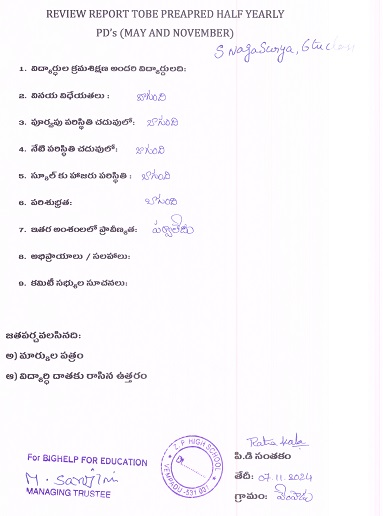 REVIEW REPORT TOBE PREAPRED HALF YEARLY
PD's (MAY AND NOVEMBER)
S NagaSurya,
1. విద్యార్థుల క్రమశిక్షణ అందరి విద్యార్థులది:
2. వినయ విధేయతలు : బాగుంది
3. పూర్వపు పరిస్థితి చదువులో: బాగుంది
4. నేటి పరిస్థితి చదువులో: బాగుంది
5. స్కూల్ కు హాజరు పరిస్థితి : బాగుంది
6. పరిశుభ్రత: బాగుంది
7. ఇతర అంశంలలో ప్రావీణ్యత: పర్వాలేదు
8. అభిప్రాయాలు / సలహాలు:
9. కమిటీ సభ్యుల సూచనలు:
జతపర్చవలసినది:
అ) మార్కుల పత్రం
ఆ) విద్యార్థి దాతకు రాసిన ఉత్తరం
పి.డి సంతకం
For BIGHELP FOR EDUCATION
M. Sarojini
MANAGING TRUSTEE
Z P HIGH SCHOOL
VEMPADU-531 081
తేదీ: 07.11.2024
గ్రామం: వేంపాడు